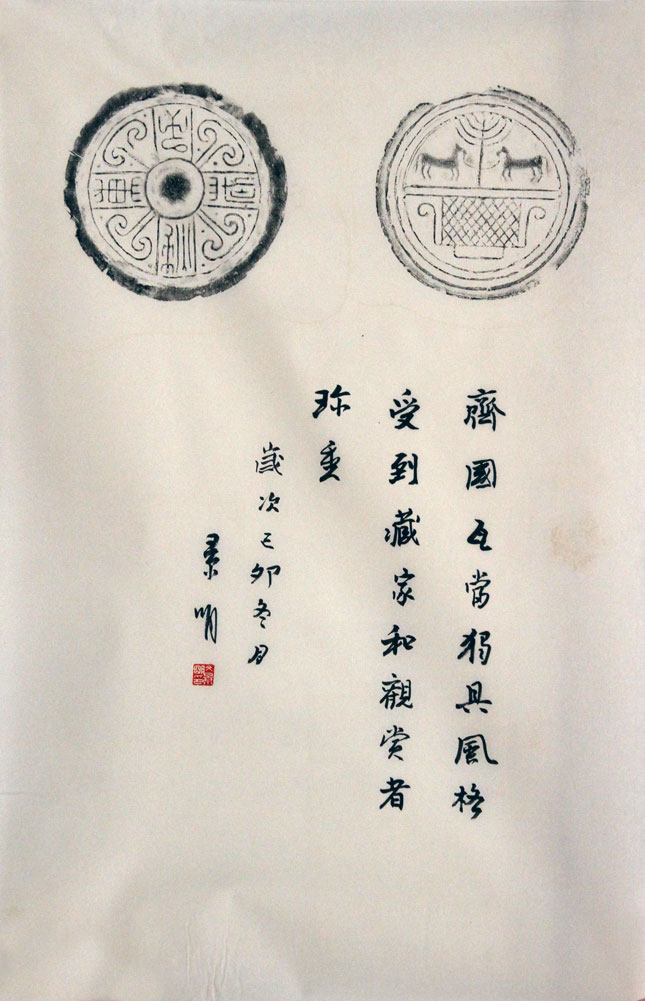 齊國瓦當獨具風格
受到藏家和觀賞者
珎重
歲次己卯冬月
景明